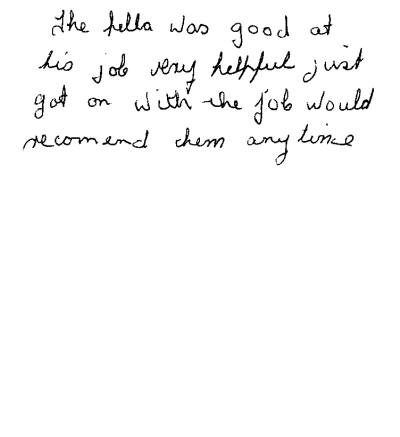 The fella was good at
his job very helpful just
got on with the job would
recomend them any time